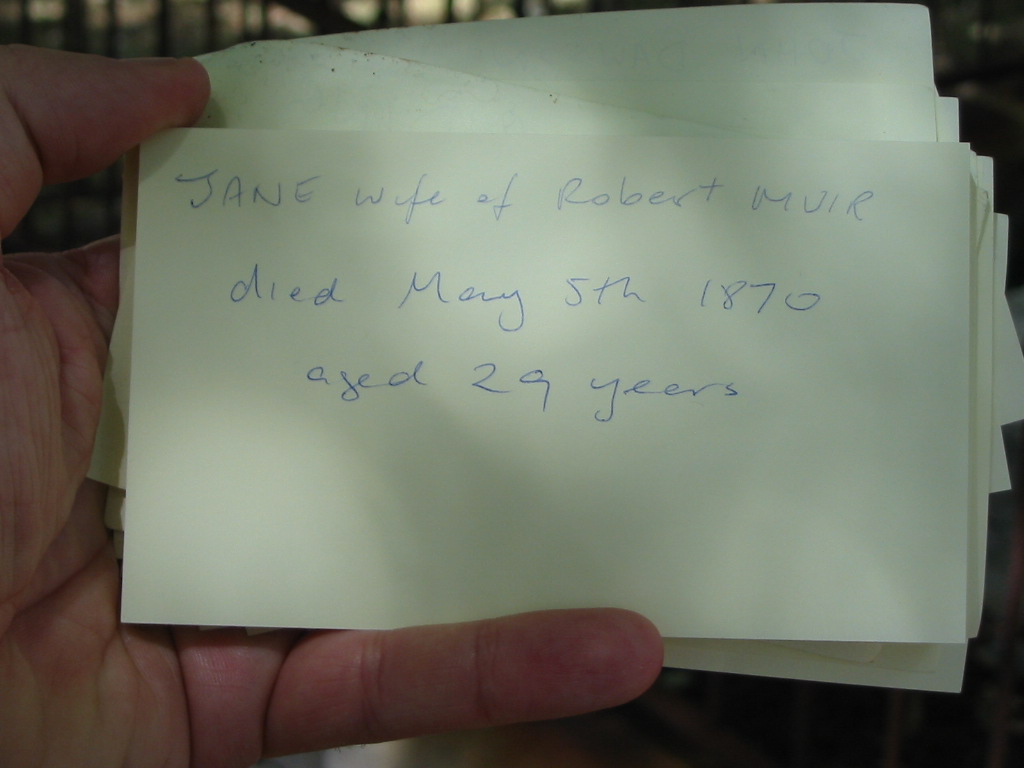 JANE wife of Robert MUIR
died May 5th 1870
aged 29 years